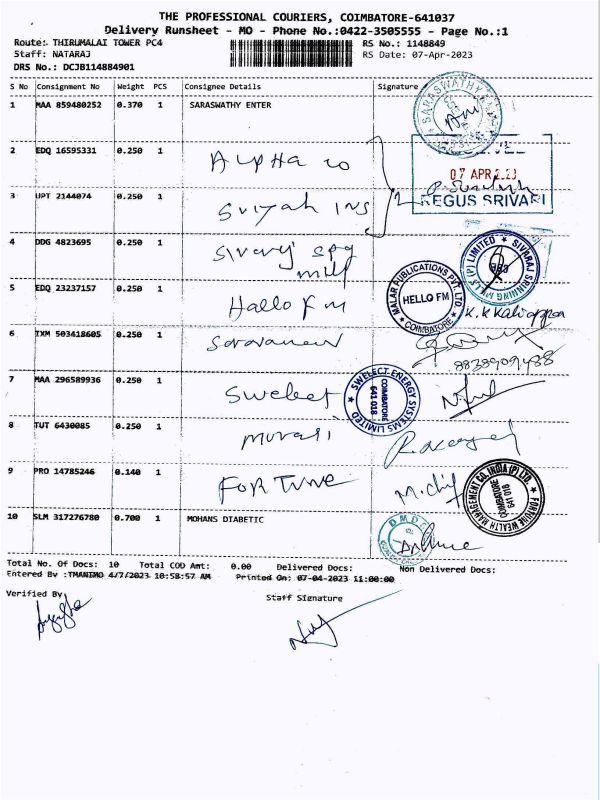 THE PROFESSIONAL COURIERS, COIMBATORE-641037
Delivery Runsheet - MO - Phone No.:0422-3505555 - Page No.:1
Route: THIRUMALAI TOWER PC4 RS No.: 1148849
Staff: NATARAJ RS Date: 07-Apr-2023
DRS No.: DCJB114884901
S No Consignment No Weight PCS Consignee Details Signature
1 MAA 859480252 0.370 1 SARASWATHY ENTER SARASWATHY
2 EDQ 16595331 0.250 1 Alpha
07 APR 2023
3 UPT 2144074 0.250 1 Sriyah Ins REGUS SRIVARI
4 DDG 4823695 0.250 1 Sivaraj spg
mill SIVARAJ SPINNING MILLS (P) LIMITED
5 EDQ 23237157 0.250 1 Hallo Fm MALAR PUBLICATIONS PVT. LTD. HELLO FM COIMBATORE K.K Kaliappan
6 TXM 503418605 0.250 1 Saravanan
8838909488
7 MAA 296589936 0.250 1 Swelect SWELECT ENERGY SYSTEMS LIMITED COIMBATORE 641 018
8 TUT 6430085 0.250 1 Murali
9 PRO 14785246 0.140 1 FORTUNE FORTUNE WEALTH MANAGEMENT CO. INDIA (P) LTD. COIMBATORE 641 018
10 SLM 317276780 0.700 1 MOHANS DIABETIC DMDSC
Total No. Of Docs: 10 Total COD Amt: 0.00 Delivered Docs: Non Delivered Docs:
Entered By :TMANIMO 4/7/2023 10:58:57 AM Printed On: 07-04-2023 11:00:00
Verified By Staff Signature